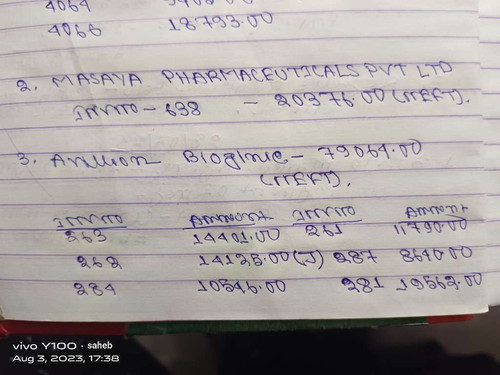 4064
4066 18793.00
2. MASAYA PHARMACEUTICALS PVT LTD
INVNO - 638 - 20376.00 (NEFT).
3. - 79064.00
(NEFT).
INVNO AMOUNT INVNO AMOUNT
263 14401.00 261 11790.00
262 14125.00 (J) 287 8640.00
284 10546.00 281 19562.00
vivo Y100 · saheb
Aug 3, 2023, 17:38